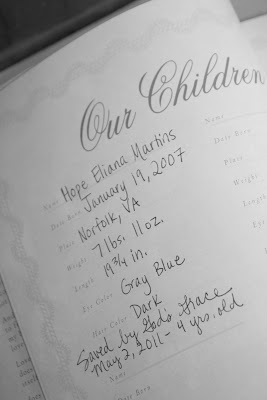 Our Children
Name Hope Eliana Martins
Date Born January 19, 2007
Place Norfolk, VA
Weight 7 lbs. 11 oz.
Length 19 3/4 in.
Eye Color Gray Blue
Hair Color Dark
Saved by God's Grace
May 2, 2011 - 4 yrs. old
Name
Date Born
Name
Date Born
Place
Weight
Length
Eye
Hair